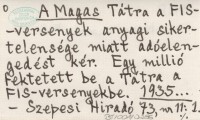 A Magas Tátra a FIS-
-versenyek anyagi siker-
telensége miatt adóelen-
gedést kér. Egy millió
fektetett be a Tátra a
FIS-versenyekbe. 1935....
– Szepesi Hiradó 73, no 11: 1.